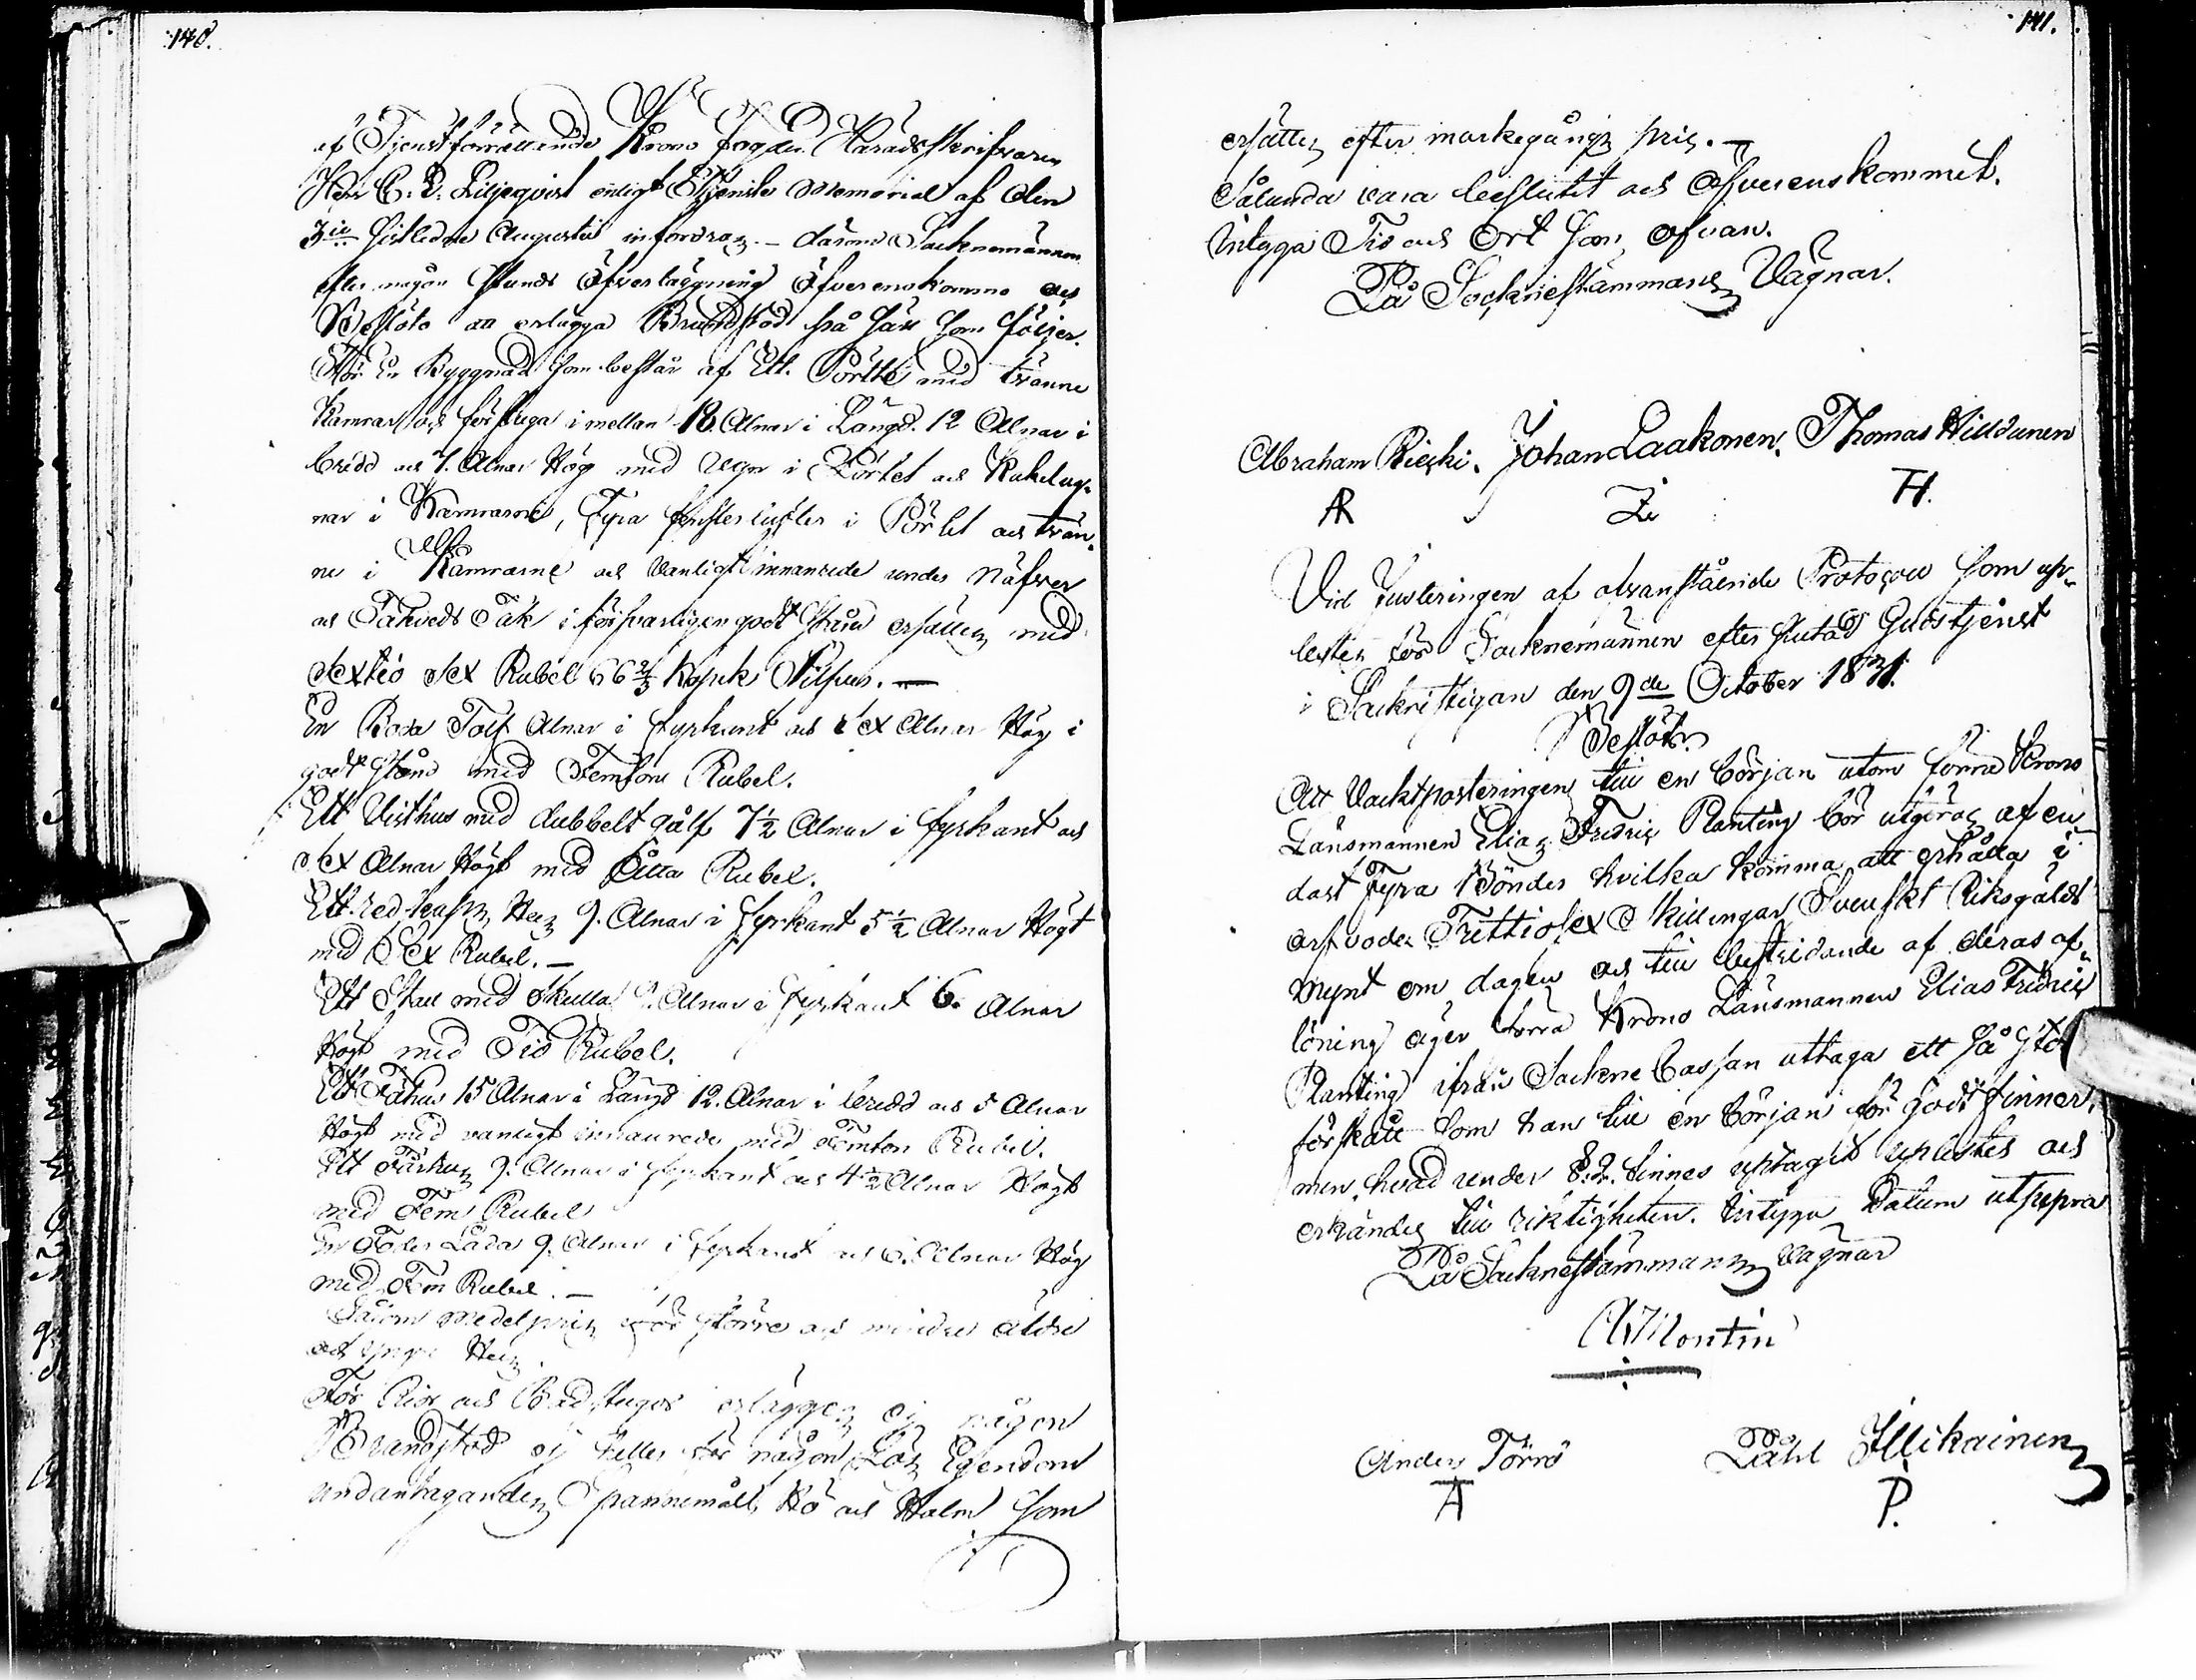 140.
af Tjenstförrättande Krono Fogden Häradsskrifvaren
Herr C. E. Liljeqvist enligt Tjenste Memorial af den
3ie sistledne Augustii infordras. – därom Socknemännen
efter någon stunds öfverläggning öfverenskommo och
Beslöto att erlägga Brandstod på sätt som följer.
För En Byggnad som består af Ett Pörtte med tvänne
Kamrar och förstuga i mellan 18. Alnar i Längd. 12 Alnar i
bredd och 7. Alnar Hög med ugn i Pörtet och Kakelug-
nar i Kamrarne, Fyra fönsterlufter i Pörtet och tvän-
ne i Kamrarne och vanligt innanrede under Näfver
och Takveds Tak i försvarligen godt stånd ersättes med
Sextio Sex Rubel 66 2/3 Kopek Silfver. —
En Bod Tolf Alnar i fyrkant och Sex Alnar Hög i
godt stånd med Femton Rubel.
Ett Visthus med dubbelt gålf 7½ Alnar i fyrkant och
Sex Alnar Högt med Åtta Rubel.
Ett redskaps Hus 9. Alnar i fyrkant 5½ Alnar Högt
med Sex Rubel. —
Ett Stall med Skulla 9. Alnar i fyrkant 6. Alnar
Högt med Tio Rubel.
Ett Fähus 15 Alnar i Längd 12. Alnar i bredd och 5 Alnar
Högt med vanligt innanrede med Femton Rubel.
Ett Fårhus 9. Alnar i fyrkant och 4½ Alnar Högt
med Fem Rubel
En Foder Lada 9. Alnar i fyrkant och 6. Alnar Hög
med Fem Rubel. —
Såsom medelpris för större och mindre äldre
och yngre Hus
För Rior och Badstugor erlägges ej någon
Brandstod ej heller för någon Lös Egendom
undantagandes Spannemål, Hö och Halm som
141.
ersättes efter markegångs pris. —
Sålunda vara beslutit och Öfverenskommit.
Intyga Tid och Ort som ofvan.
På Socknestämmans Vägnar.
Abraham Rieski. Johan Laakonen. Thomas Hilldunen
AR TH.
Vid Justeringen af ofvanstående Protocoll som up-
lestes för Socknemännen efter slutad Gudstjenst
i Sackristigan den 9de October 1831.
Beslöts
Att Vacktposteringen till en början utom förra Krono
Länsmannen Elias Fredric Planting bör utgöras af en
dast Fyra Bönder hvilka komma att erhålla i
arfvode Trettiosex Skillingar Svenskt Riksgälds
mynt om dagen och till bestridande af deras af-
löning äger förra Krono Länsmannen Elias Fredric
Planting ifrån Sockne Cassan uttaga ett så stort
förskått som han till en början för godt finner,
men hvad under § 2. finnes uptagit uplestes och
erkändes till riktigheten. Intyga Datum utsupra
På Socknestämmans Vägnar
A. Montin
Anders Törrö Påhl Illikainen
A P.